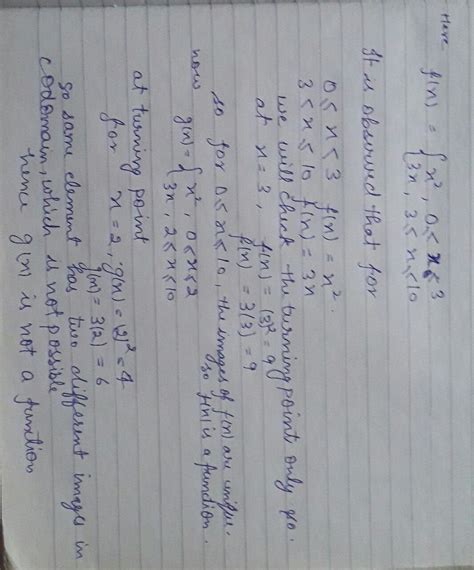 Here f(x) = { x², 0 ≤ x ≤ 3
3x, 3 ≤ x ≤ 10
It is observed that for
0 ≤ x ≤ 3 f(x) = x².
3 ≤ x ≤ 10 f(x) = 3x
we will check the turning point only so.
at x = 3, f(x) = (3)² = 9
f(x) = 3(3) = 9
so for 0 ≤ x ≤ 10, the images of f(x) are unique.
so f(x) is a function.
now
g(x) = { x², 0 ≤ x ≤ 2
3x, 2 ≤ x ≤ 10
at turning point
for x = 2, g(x) = (2)² = 4
g(x) = 3(2) = 6
So same element has two different images in
codomain, which is not possible
hence g(x) is not a function